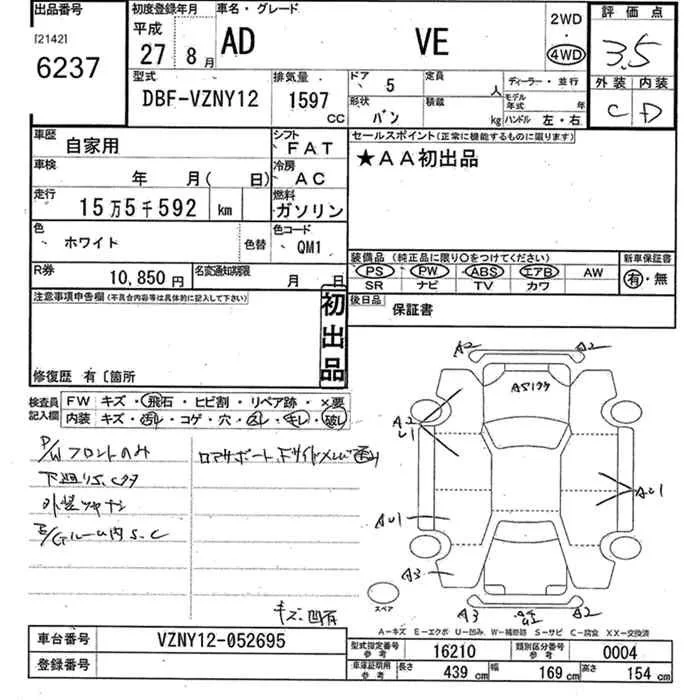 出品番号
[2142]
6237
初度登録年月
平成
27 8月
車名・グレード
AD VE
2WD
・
4WD
評価点
3.5
外装 内装
C D
型式
DBF-VZNY12
排気量
1597
CC
ドア 5
形状 バン
定員 人
積載 kg
ディーラー・並行
モデル年式 年
ハンドル 左・右
車歴 自家用
シフト FAT
車検 年 月( 日)
冷房 AC
走行 15万5千592 km
燃料 ガソリン
色 ホワイト 色替
色コード QM1
R券 10,850円
名変通知期限 月 日
セールスポイント(正常に機能するものに限ります)
★AA初出品
装備品 (純正品に限り○をつけてください)
新車保証書
PS PW ABS エアB AW
有・無
SR ナビ TV カワ
後日品 保証書
注意事項申告欄(不具合内容等は具体的に記入して下さい)
初出品
修復歴 有〔箇所
検査員記入欄
FW キズ・飛石・ヒビ割・リペア跡・×要
内装 キズ・汚れ・コゲ・穴・スレ・キレ・破レ
P/Wフロントのみ
下廻りS.C
E/Gルーム内 S.C
キズ・凹有
A2 A2
A2
U1
AU1
AU1
A3
スペア
A3 A2
A-キズ E-エクボ U-凹み W-補修跡 S-サビ C-腐食 XX-交換済
車台番号 VZNY12-052695
登録番号
型式指定番号 参考 16210
類別区分番号 参考 0004
車庫証明用 参考 長さ 439 cm 幅 169 cm 高さ 154 cm